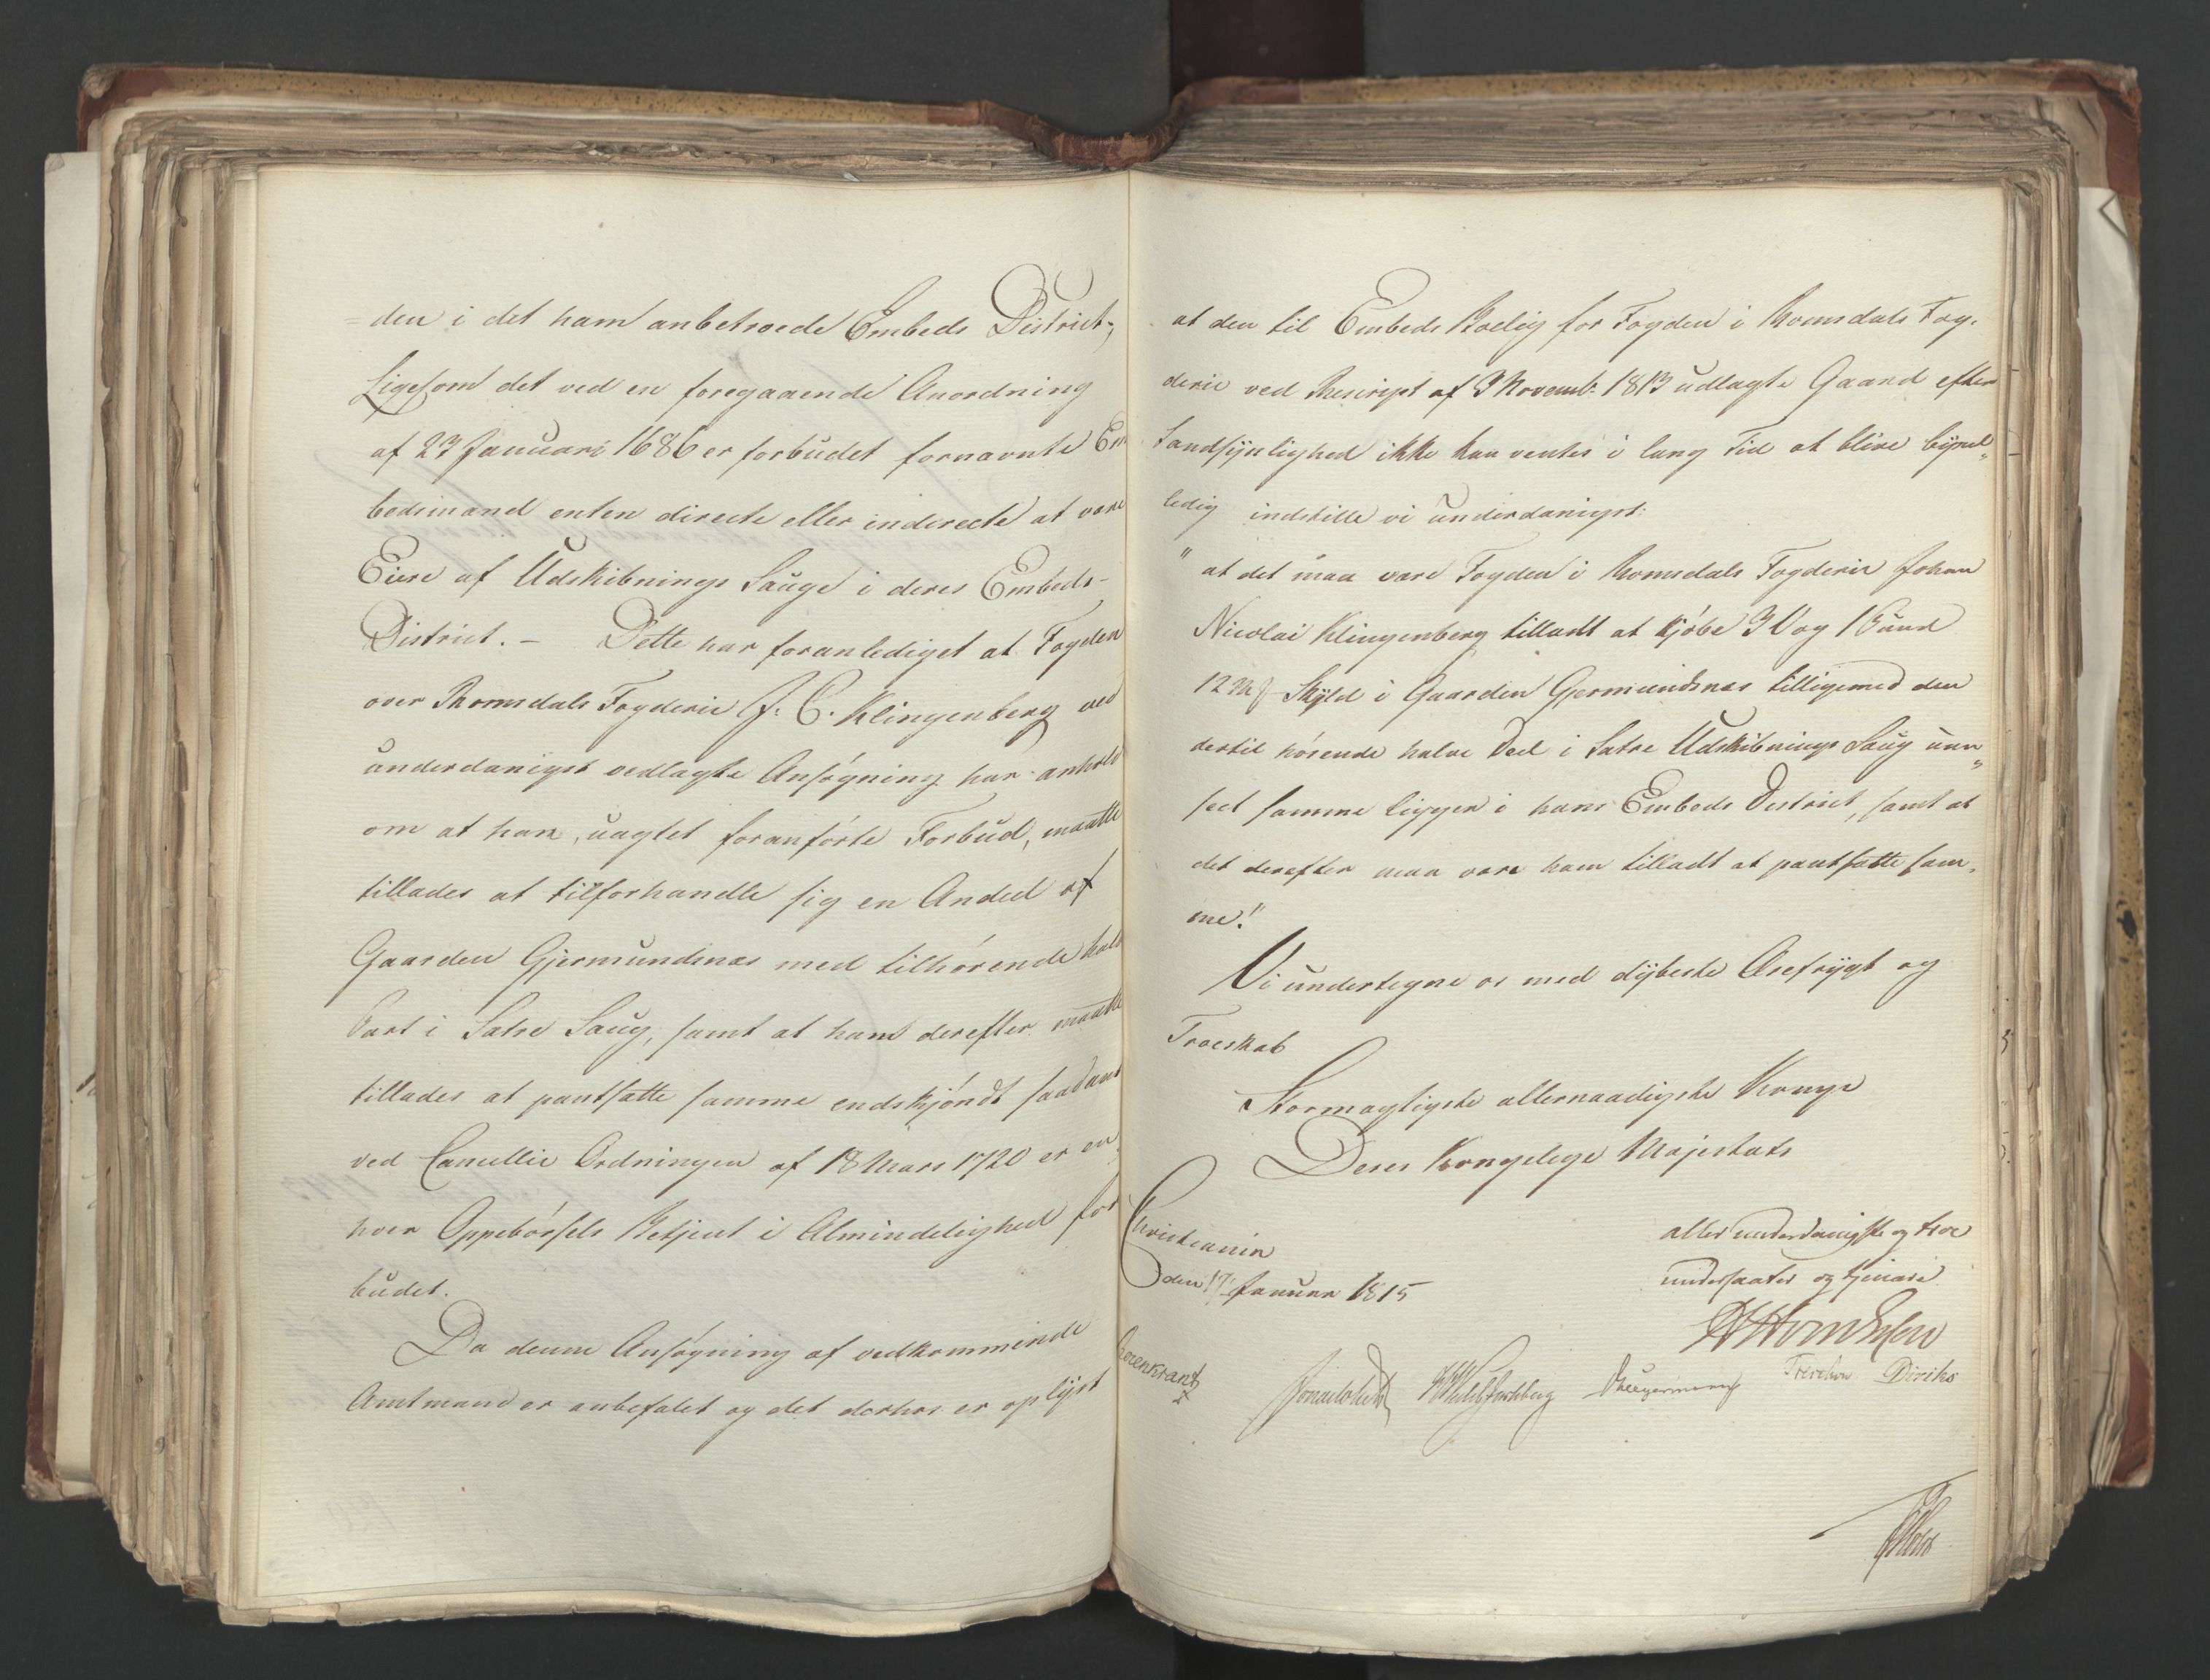 = den i det ham anbetroede Embeds District;
Ligesom det ved en foregaaende Anordning
af 23 Januari 1686 er forbudet fornævnte Em
bedsmænd enten directe eller indirecte at være
Eiere af Udskibnings Sauge i deres Embeds-
District. – Dette har foranlediget at Fogden
over Romsdals Fogderie J. C. Klingenberg ved
underdanigst vedlagte Ansøgning har anholdt
om at han, uagtet foranførte Forbud, maatte
tillades at tilforhandle sig en Andeel af
Gaarden Gjermundsnæs med tilhørende halv
Part i Sætre Saug, samt at ham derefter maatte
tillades at pantsætte samme endskjøndt saadant
ved Cancellie Ordningen af 18 Mars 1720 er en
hver Oppebørsels Betjent i Almindelighed for
budet.
Da denne Ansøgning af vedkommende
Amtmand er anbefalet og det derhos er oplyst
at den til Embeds Boelig for Fogden i Romsdals Fog,
derie ved Rescript af 3 Novemb: 1813 udlagte Gaard efter
Sandsynlighed ikke kan ventes i lang Tid at blive byrd„
ledig indstille vi underdanigst:
" at det maa være Fogden i Romsdals Fogderie Johan
Nicolai Klingenberg tilladt at kjøbe 3 V og 1 Pund
12 Skyld i Gaarden Gjermundsnæs tilligemed den
dertil hørende halve Deel i Sætre Udskibnings Saug uan„
seet samme ligger i hans Embeds District, samt at
det derefter maa være ham tilladt at pantsætte sam,
me!"
Vi undertegne os med dybeste Ærefrygt og
Troeskab
Stormægtigste allernaadigste Konge
Deres Kongelige Majestæts
Christiania
den 17 Januar 1815
allerunderdanigste og troe
undersaatter og tjenere
Rosenkrantz
Sommerhielm
Treschow
Diriks